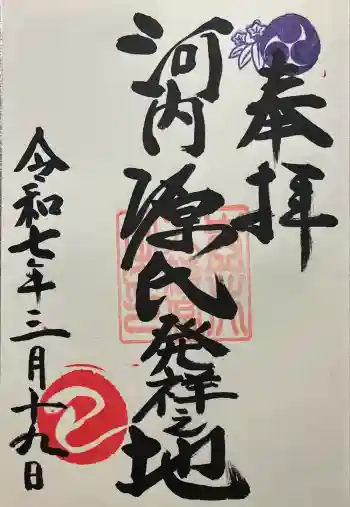 奉拝
河内源氏発祥之地
令和七年三月十九日